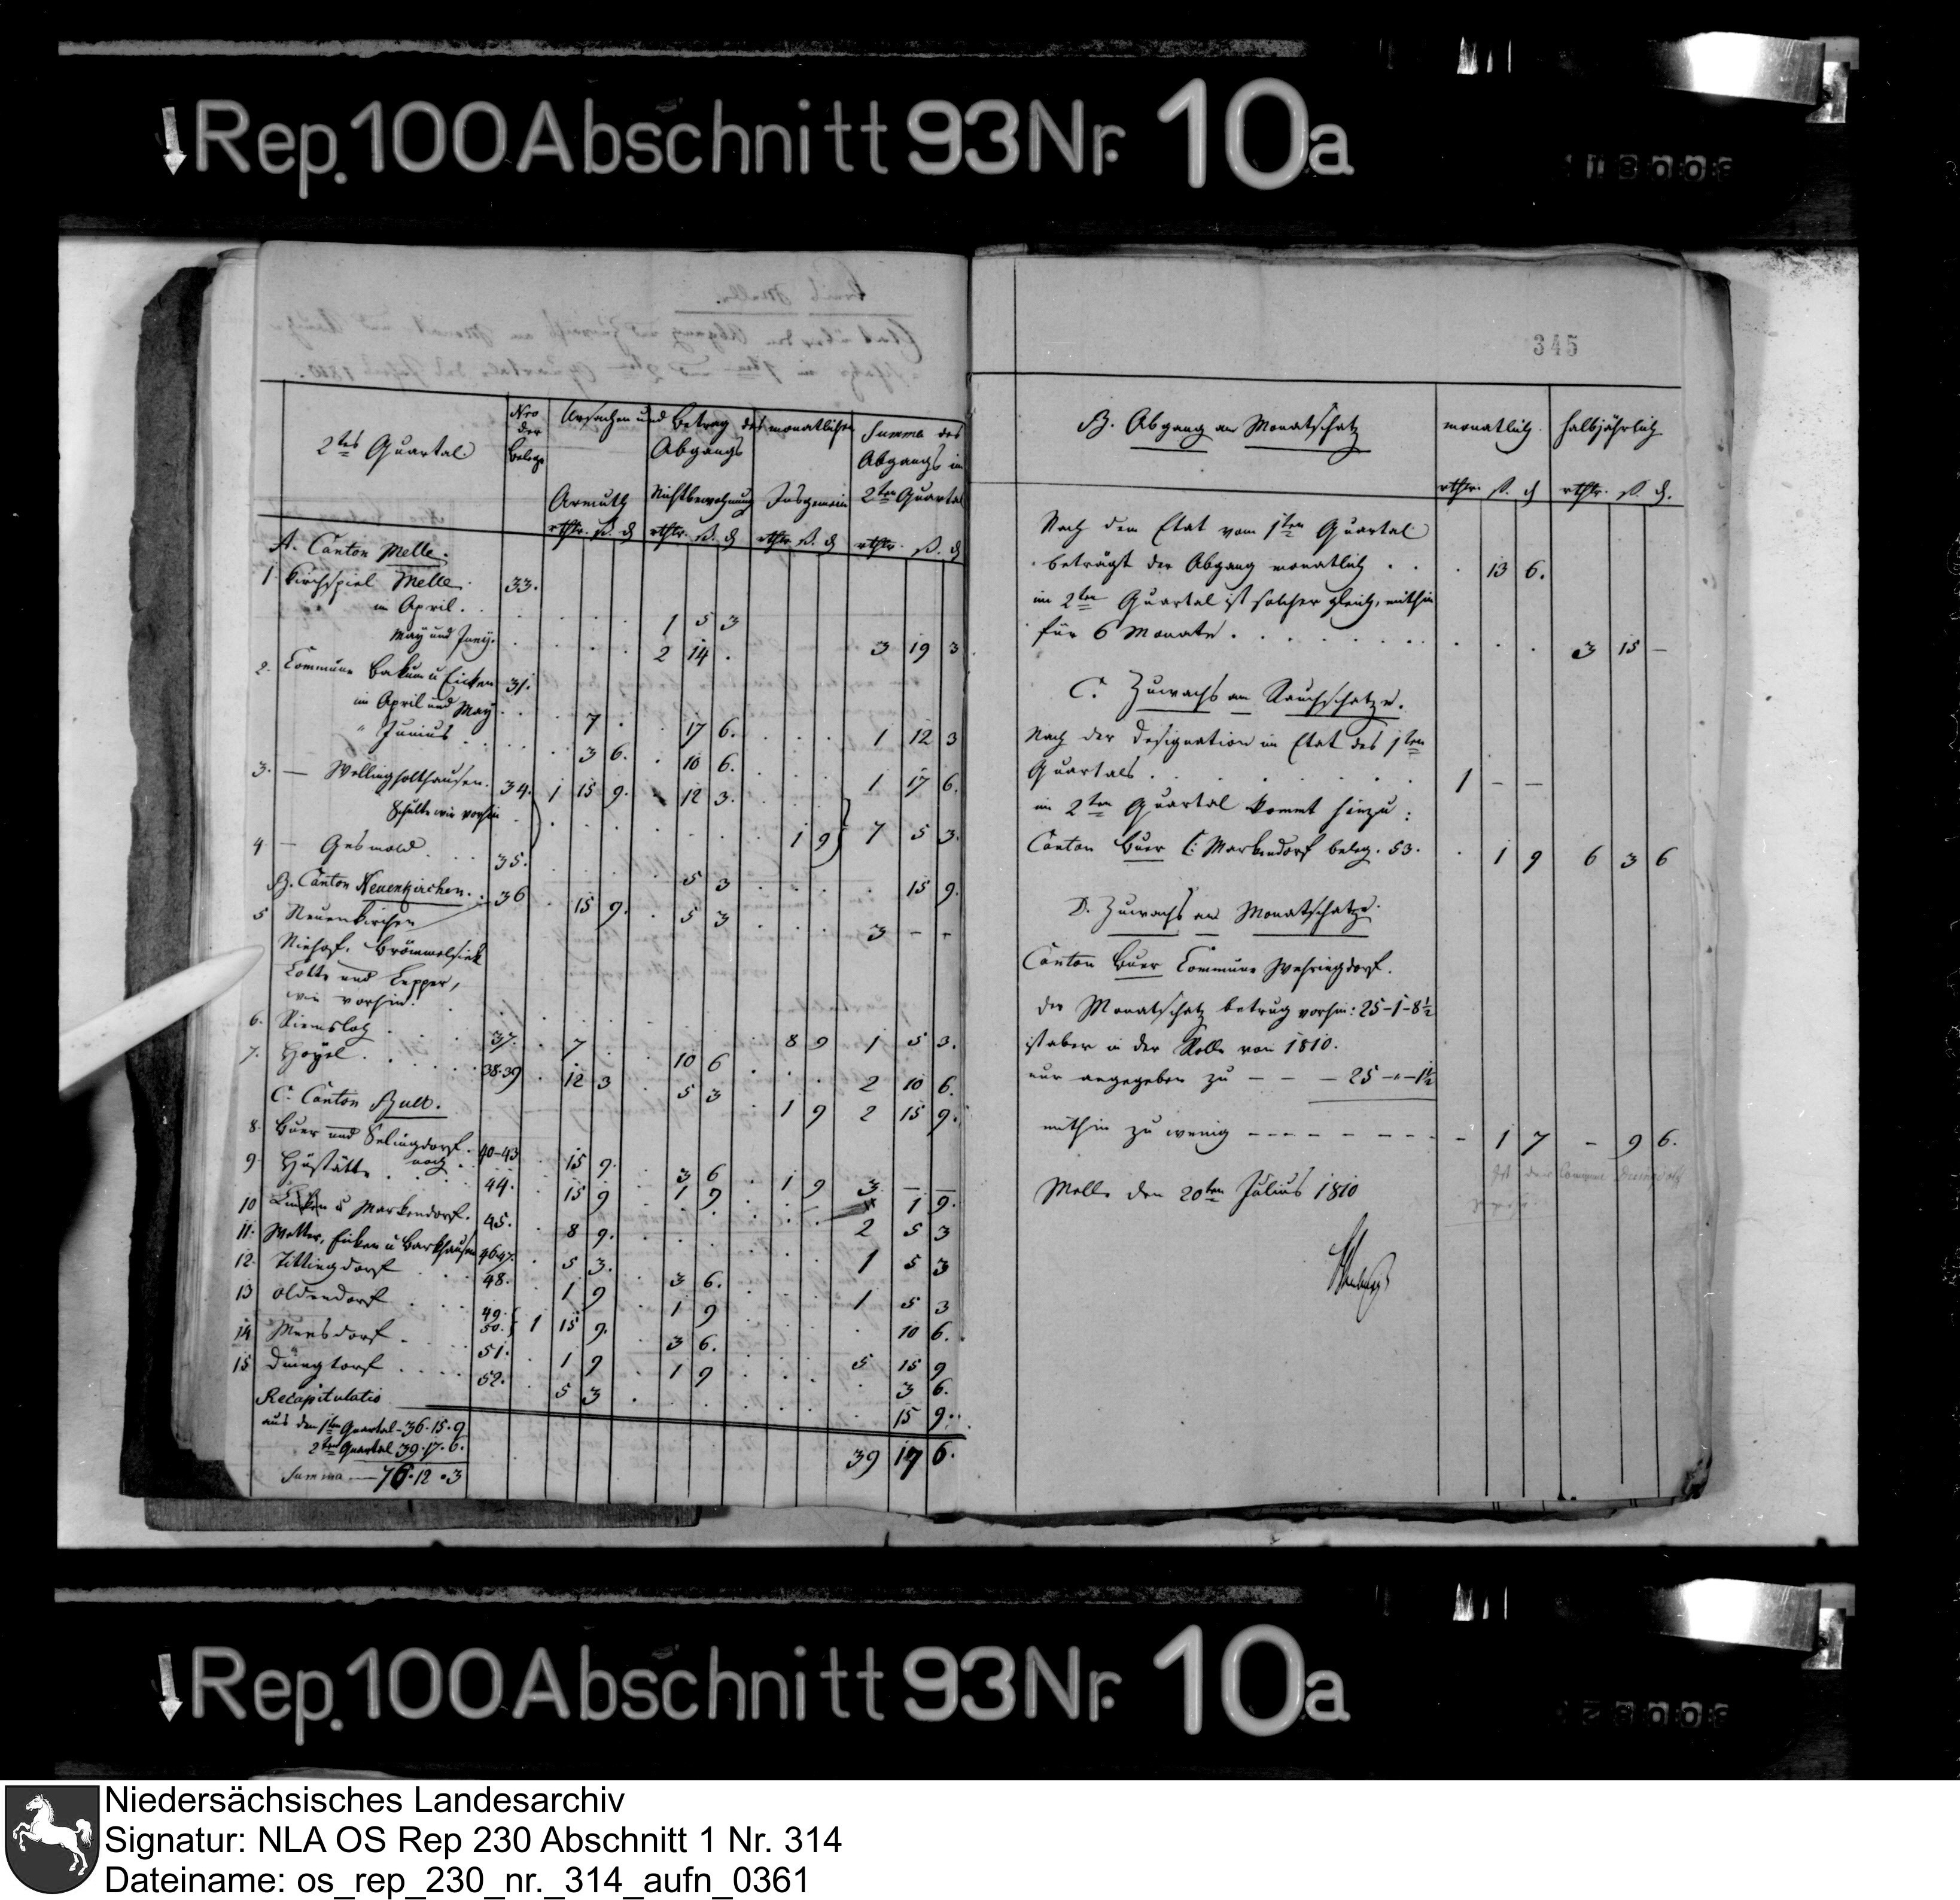 Rep. 100 Abschnitt 93 Nr. 10a
345
2tes Quartal
Nro der Belege
Ursachen und Betrag des monatlichen Abgangs
Summa des Abgangs im 2ten Quartal
Armuth
Nichtbewohnung
Insgemein
rthlr. ß. d
rthlr. ß. d
rthlr. ß. d
rthlr. ß. d
A. Canton Melle.
1. Kirchspiel Melle. 33.
im April. . . . . . 1 5 3
May und Juny. . . . . 2 14 . 3 19 3
2. Commune Bakum u Eicken 31.
im April und May . . . 7 . . 17 6. . . . 1 12 3
" Junius . . . . 3 6. . 10 6. . . . 1 17 6.
3. — Wellingholthausen. 34. 1 15 9. 12 3.
Schulte wie vorhin . . . . . . . 1 9 7 5 3.
4 — Gesmold . . . 35. . . . . 5 3 . . . . 15 9.
B. Canton Neuenkirchen. . 36 . 15 9. . 5 3 . . . 3 - -
5 Neuenkirchen
Niehof. Brömmelsiek
Lotte und Lepper,
wie vorhin. . . . . . . . 8 9 1 5 3.
6. Riemsloh . . . 37. . 7 . . 10 6 . . . 2 10 6.
7. Hoyel . . . . . 38.39 . 12 3 . 5 3 . 1 9 2 15 9.
C. Canton Buer.
8. Buer und Sehlingdorf. 40-43 . 15 9. . 3 6 . 1 9 3 — —
9. Hüstätte . noch . 44. . 15 9 . 1 9 . . . 1 9.
10 u Markendorf. 45. . 8 9. . . . . . . 2 5 3
11. Wetter, Eicken u Barkhausen 46.47. . 5 3. . 3 6. . . . 1 5 3
12. Tittingdorf . . 48. . 1 9 . 1 9 . . . 1 5 3
13 Oldendorf . . . 49. 50. 1 15 9. . 3 6. . . . . 10 6.
14 Meesdorf . . . 51. . 1 9 . 1 9 . . . 5 15 9
15 Duingtorf . . . . 52. . 5 3 . . . . . . . 3 6.
Recapitulatio . 15 9.
aus dem 1ten Quartal - 36. 15. 9
2ten Quartal 39. 17. 6.
39 17 6.
Summa — 76. 12 . 3
B. Abgang am Monatschatz
monatlich.
halbjährlich
rthlr. ß. d
rthlr. ß. d.
Nach dem Etat vom 1ten Quartal
beträgt der Abgang monatlich . . . 13 6.
im 2ten Quartal ist solcher gleich, mithin
für 6 Monate . . . . . . . . . . . 3 15 —
C. Zuwachs am Rauchschatze.
Nach der Designation im Etat des 1ten
Quartals . . . . . . . 1 — —
im 2ten Quartal kommt hinzu:
Canton Buer C: Markendorf beleg. 53. . 1 9 6 3 6
D. Zuwachs am Monatschatze.
Canton Buer Commune Wehringdorf.
der Monatschatz betrug vorhin: 25-1-8½
ist aber in der Rolle von 1810.
nur angegeben zu — — — 25 - " - 1½
mithin zu wenig - - - - - - - - 1 7 - 9 6.
Melle den 20ten Julius 1810
Rep. 100 Abschnitt 93 Nr. 10a
Niedersächsisches Landesarchiv
Signatur: NLA OS Rep 230 Abschnitt 1 Nr. 314
Dateiname: os_rep_230_nr._314_aufn_0361